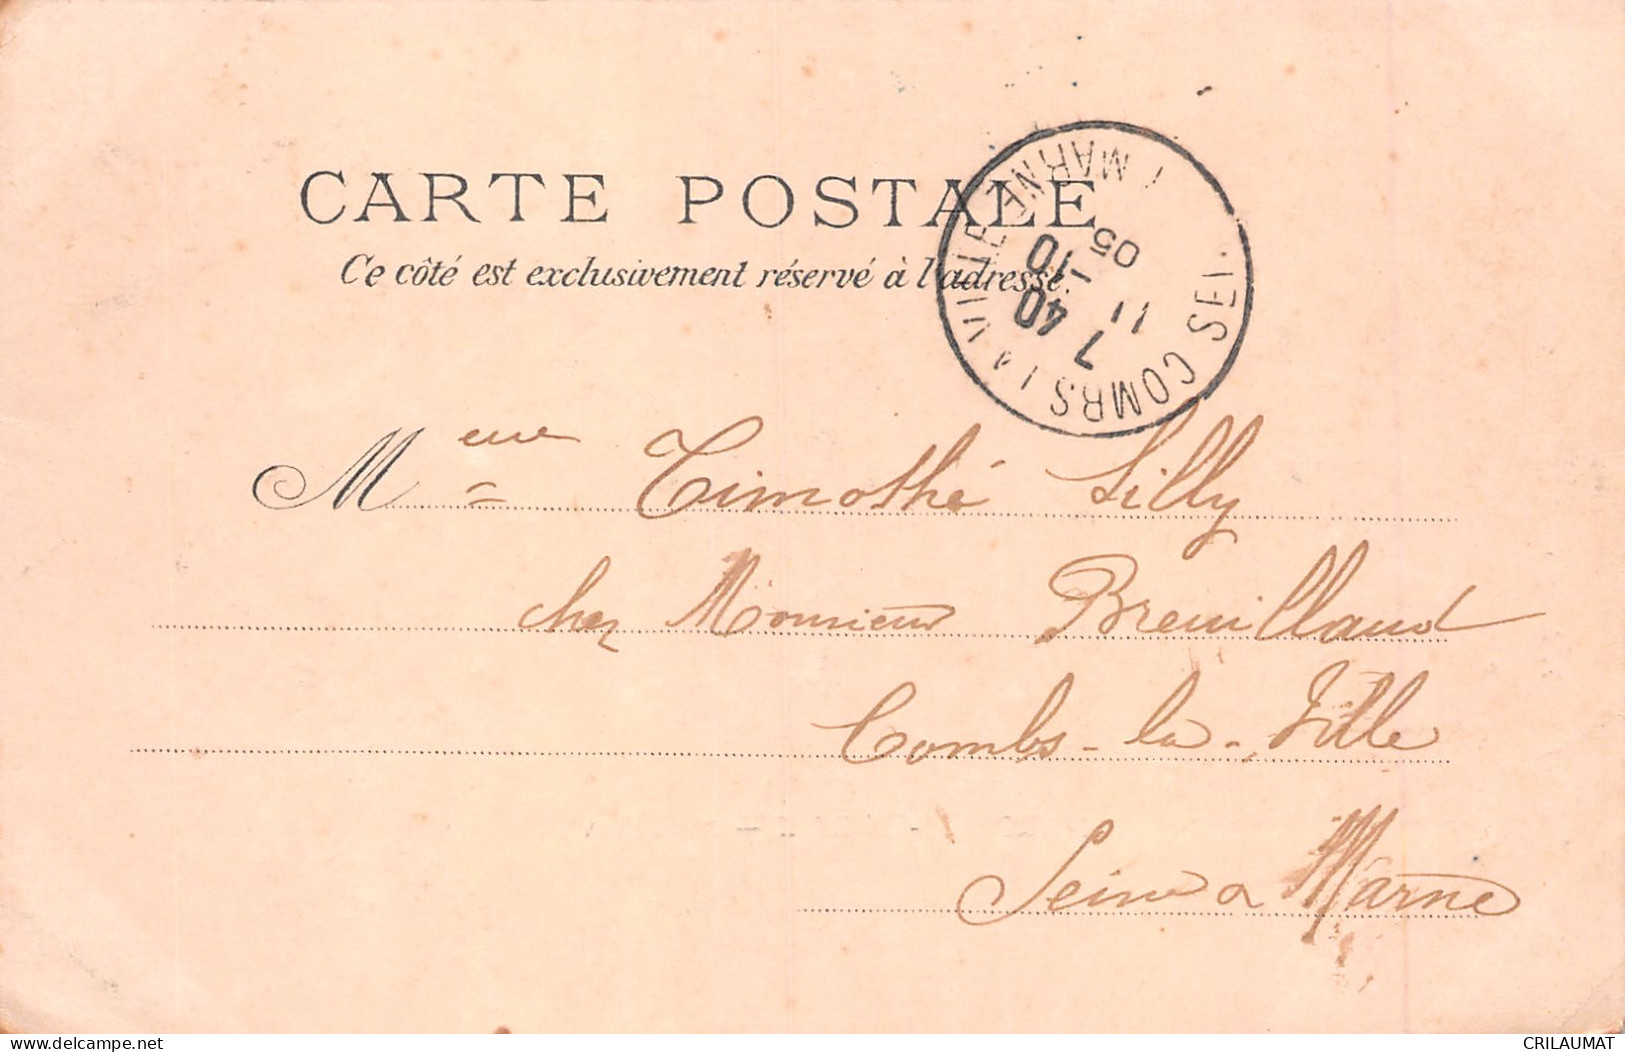 CARTE POSTALE
Ce côté est exclusivement réservé à l'adresse.
COMBS LA VILLE
7 40
11 - 10
05
Mme Timothé Lilly
chez Monsieur Breuilland
Combs-la-Ville
Seine & Marne
delcampe.net
CRILAUMAT